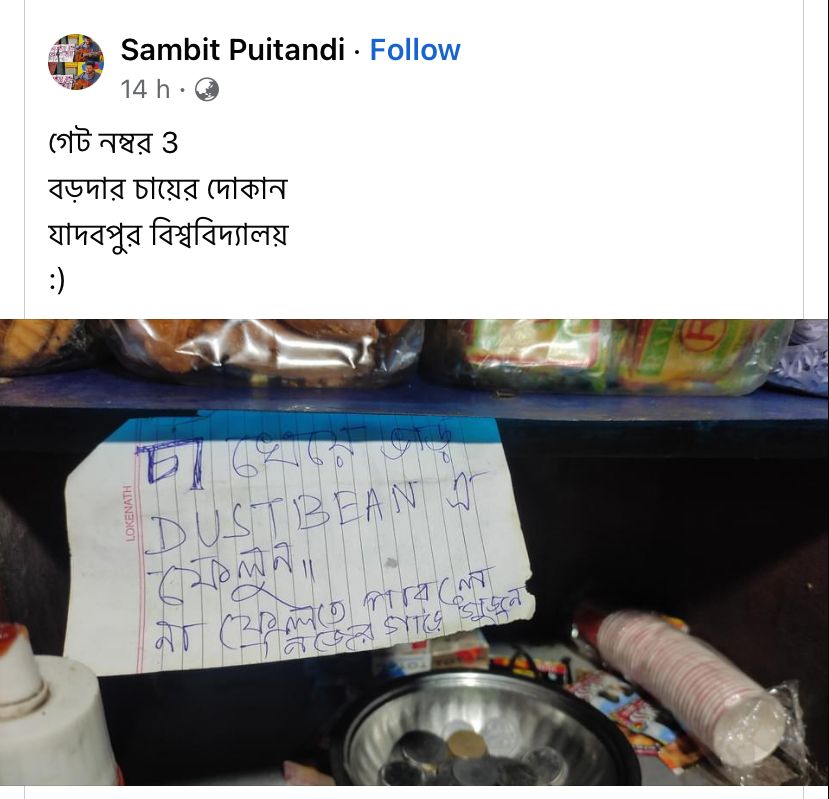 Sambit Puitandi · Follow
14 h ·
গেট নম্বর 3
বড়দার চায়ের দোকান
যাদবপুর বিশ্ববিদ্যালয়
:)
LOKENATH
চা খেয়ে ভাড়
DUSTBEAN এ
ফেলুন॥
না ফেলতে পারলে
নিজের গাড়ে গুজুন